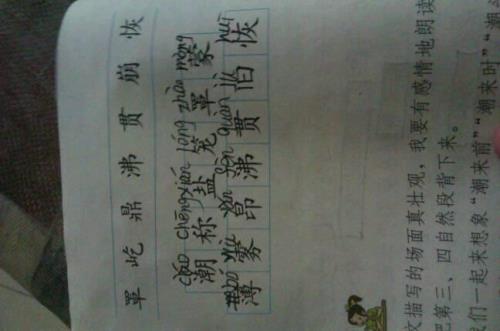 罩 屹 鼎 沸 贯 崩 恢
cháo chēng xián lóng zhào méng
潮 称 盐 笼 罩 蒙
báo wù áng fèi guàn huī
薄 雾 昂 沸 贯 旧 恢
文描写的场面真壮观，我要有感情地朗读
把第三、四自然段背下来。
们一起来想象“潮来前”“潮来时”“潮